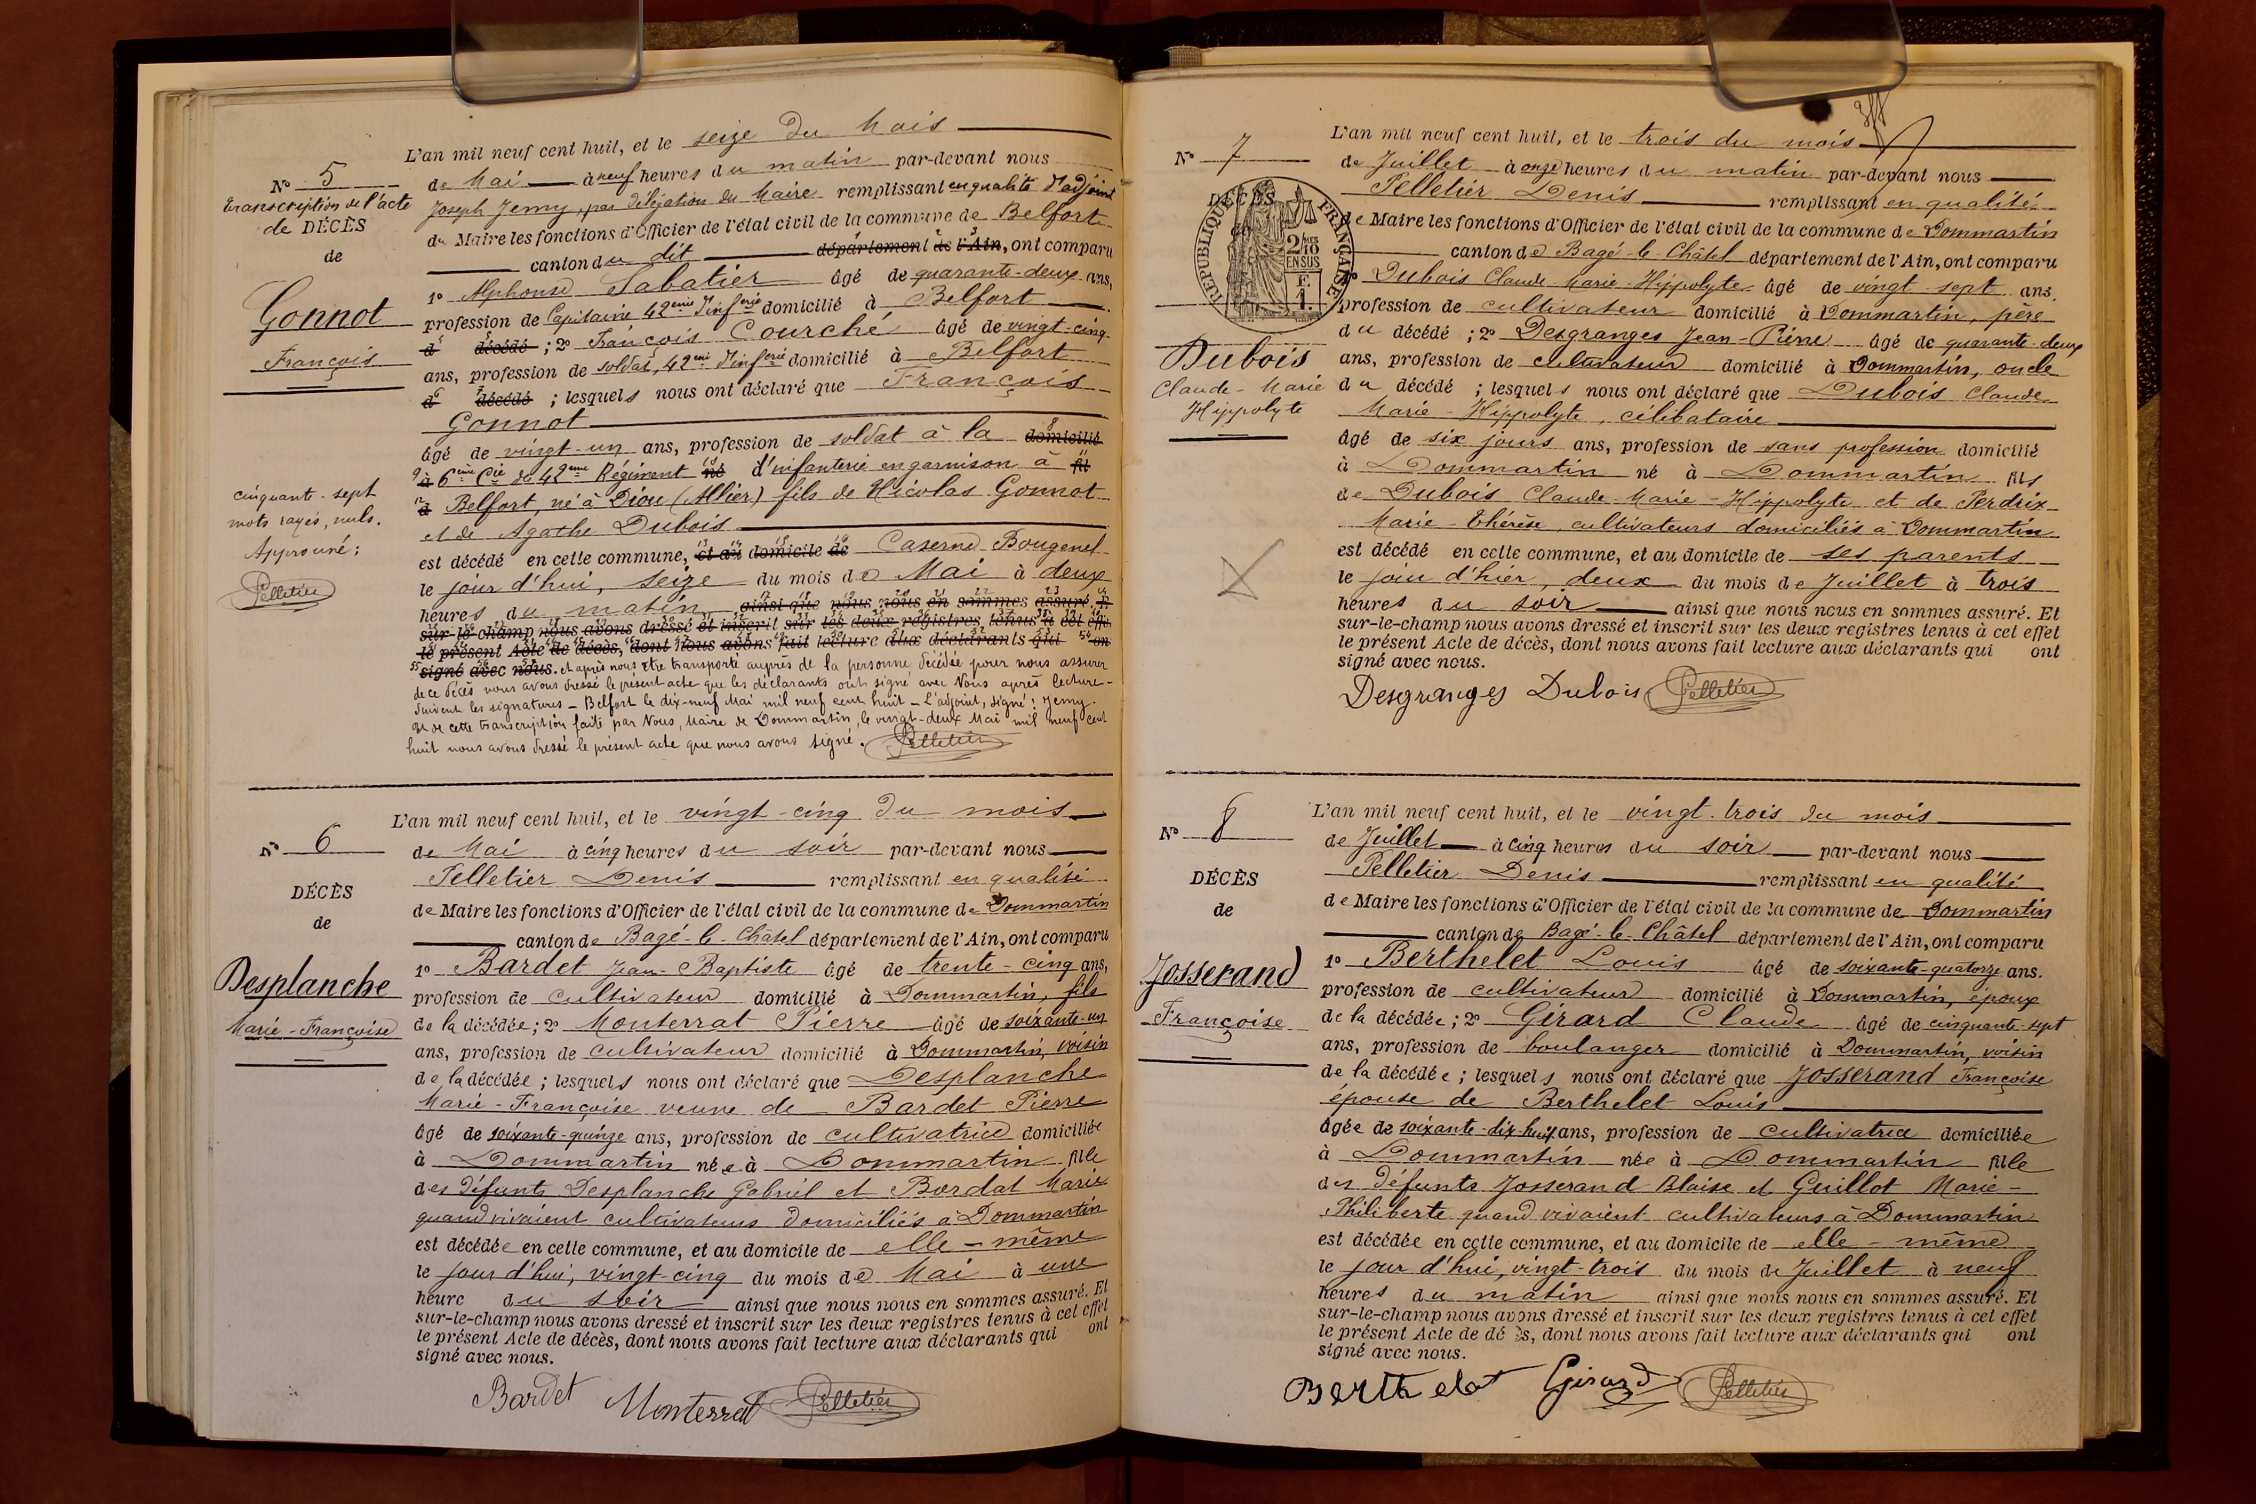 N° 5
Transcription de l'acte
de DÉCÈS
de
Gonnot
François
cinquante-sept
mots rayés, nuls.
Approuvé :
Pelletier
L'an mil neuf cent huit, et le seize du mois
de Mai à neuf heures du matin par-devant nous
Joseph Jemy, par délégation du Maire remplissant en qualité d'adjoint
du Maire les fonctions d'Officier de l'état civil de la commune de Belfort
canton du dit département de l'Ain, ont comparu
1° Alphonse Sabatier âgé de quarante-deux ans,
profession de Capitaine 42eme Inferie domicilié à Belfort
d décédé ; 2° François Courché âgé de vingt-cinq
ans, profession de soldat, 42eme Inferie domicilié à Belfort
d décédé ; lesquels nous ont déclaré que François
Gonnot
âgé de vingt-un ans, profession de soldat à la domicilié
à 6eme Cie du 42eme Régiment né d'infanterie en garnison à fil
d Belfort, né à Diou (Allier) fils de Nicolas Gonnot
et de Agathe Dubois
est décédé en cette commune, et au domicile de Caserne Bougenel
le jour d'hui, seize du mois de Mai à deux
heures du matin ainsi que nous nous en sommes assuré. Et
sur-le-champ nous avons dressé et inscrit sur les deux registres tenus à cet effet
le présent Acte de décès, dont nous avons fait lecture aux déclarants qui ont
signé avec nous. et après nous être transporté auprès de la personne décédée pour nous assurer
de ce décès nous avons dressé le présent acte que les déclarants ont signé avec Nous après lecture -
Suivent les signatures - Belfort le dix-neuf Mai mil neuf cent huit - L'adjoint, signé : Jemy.
Et de cette transcription faite par Nous, Maire de Dommartin, le vingt-deux Mai mil neuf cent
huit nous avons dressé le présent acte que nous avons signé. Pelletier
N° 6
DÉCÈS
de
Desplanche
Marie-Françoise
L'an mil neuf cent huit, et le vingt-cinq du mois
de Mai à cinq heures du soir par-devant nous
Pelletier Denis remplissant en qualité
de Maire les fonctions d'Officier de l'état civil de la commune de Dommartin
canton de Bagé-le-Châtel département de l'Ain, ont comparu
1° Bardet Jean-Baptiste âgé de trente-cinq ans,
profession de cultivateur domicilié à Dommartin, fils
de la décédée ; 2° Monterrat Pierre âgé de soixante-un
ans, profession de cultivateur domicilié à Dommartin, voisin
de la décédée ; lesquels nous ont déclaré que Desplanche
Marie-Françoise veuve de Bardet Pierre
âgé de soixante-quinze ans, profession de cultivatrice domiciliée
à Dommartin née à Dommartin fille
des défunts Desplanche Gabriel et Bordat Marie
quand vivaient cultivateurs domiciliés à Dommartin
est décédée en cette commune, et au domicile de elle-même
le jour d'hui, vingt-cinq du mois de Mai à une
heure du soir ainsi que nous nous en sommes assuré. Et
sur-le-champ nous avons dressé et inscrit sur les deux registres tenus à cet effet
le présent Acte de décès, dont nous avons fait lecture aux déclarants qui ont
signé avec nous.
Bardet Monterrat Pelletier
N° 7
DÉCÈS
RÉPUBLIQUE FRANÇAISE
2/10
EN SUS
F.
1
Dubois
Claude-Marie
Hippolyte
L'an mil neuf cent huit, et le trois du mois
de Juillet à onze heures du matin par-devant nous
Pelletier Denis remplissant en qualité
de Maire les fonctions d'Officier de l'état civil de la commune de Dommartin
canton de Bagé-le-Châtel département de l'Ain, ont comparu
1° Dubois Claude-Marie-Hippolyte âgé de vingt-sept ans.
profession de cultivateur domicilié à Dommartin, père
du décédé ; 2° Desgranges Jean-Pierre âgé de quarante-deux
ans, profession de cultivateur domicilié à Dommartin, oncle
du décédé ; lesquels nous ont déclaré que Dubois Claude
Marie-Hippolyte, célibataire
âgé de six jours ans, profession de sans profession domicilié
à Dommartin né à Dommartin fils
de Dubois Claude-Marie-Hippolyte et de Perdrix
Marie-Thérèse, cultivateurs domiciliés à Dommartin
est décédé en cette commune, et au domicile de ses parents
le jour d'hier, deux du mois de Juillet à trois
heures du soir ainsi que nous nous en sommes assuré. Et
sur-le-champ nous avons dressé et inscrit sur les deux registres tenus à cet effet
le présent Acte de décès, dont nous avons fait lecture aux déclarants qui ont
signé avec nous.
Desgranges Dubois Pelletier
N° 8
DÉCÈS
de
Josserand
Françoise
L'an mil neuf cent huit, et le vingt-trois du mois
de Juillet à cinq heures du soir par-devant nous
Pelletier Denis remplissant en qualité
de Maire les fonctions d'Officier de l'état civil de la commune de Dommartin
canton de Bagé-le-Châtel département de l'Ain, ont comparu
1° Berthelet Louis âgé de soixante-quatorze ans.
profession de cultivateur domicilié à Dommartin, époux
de la décédée ; 2° Girard Claude âgé de cinquante-sept
ans, profession de boulanger domicilié à Dommartin, voisin
de la décédée ; lesquels nous ont déclaré que Josserand Françoise
épouse de Berthelet Louis
âgée de soixante-dix-huit ans, profession de cultivatrice domiciliée
à Dommartin née à Dommartin fille
des défunts Josserand Blaise et Guillot Marie-
Philiberte quand vivaient cultivateurs à Dommartin
est décédée en cette commune, et au domicile de elle-même
le jour d'hui, vingt-trois du mois de Juillet à neuf
heures du matin ainsi que nous nous en sommes assuré. Et
sur-le-champ nous avons dressé et inscrit sur les deux registres tenus à cet effet
le présent Acte de décès, dont nous avons fait lecture aux déclarants qui ont
signé avec nous.
Berthelet Girard Pelletier